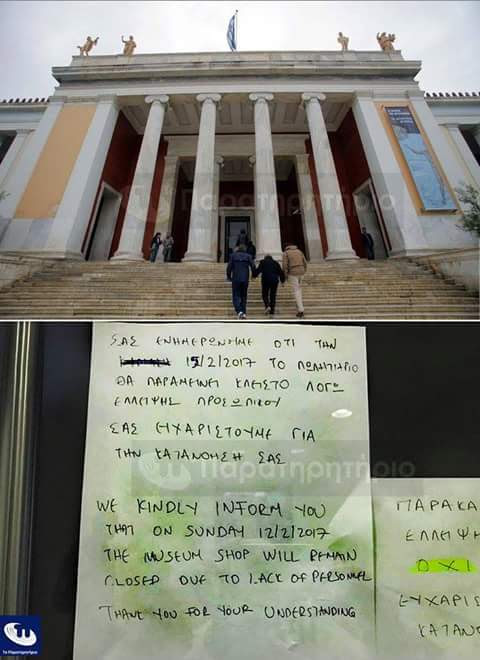 Παρατηρητήριο
ΣΑΣ ΕΝΗΜΕΡΩΝΟΥΜΕ ΟΤΙ ΤΗΝ
15/2/2017 ΤΟ ΠΩΛΗΤΗΡΙΟ
ΘΑ ΠΑΡΑΜΕΙΝΕΙ ΚΛΕΙΣΤΟ ΛΟΓΩ
ΕΛΛΕΙΨΗΣ ΠΡΟΣΩΠΙΚΟΥ
ΣΑΣ ΕΥΧΑΡΙΣΤΟΥΜΕ ΓΙΑ
ΤΗΝ ΚΑΤΑΝΟΗΣΗ ΣΑΣ
Παρατηρητήριο
WE KINDLY INFORM YOU
THAT ON SUNDAY 12/2/2017
THE MUSEUM SHOP WILL REMAIN
CLOSED DUE TO LACK OF PERSONNEL
THANK YOU FOR YOUR UNDERSTANDING
ΠΑΡΑΚΑ
ΕΛΛΕΙΨΗ
ΟΧΙ
ΕΥΧΑΡΙΣ
ΚΑΤΑΝΟ
Το Παρατηρητήριο